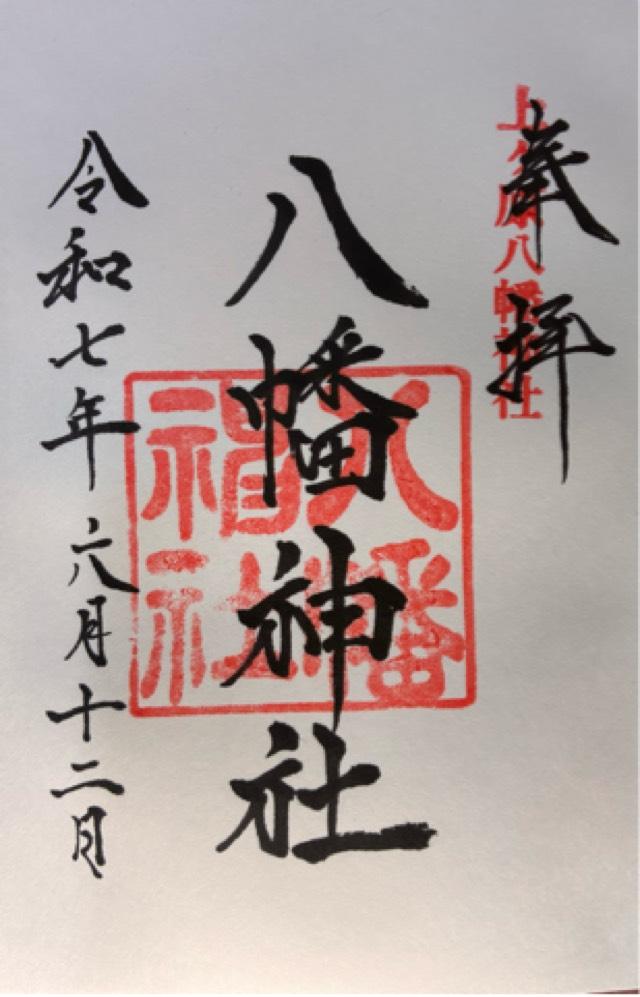 奉拝
上ケ原八幡神社
八幡神社
八幡神社
令和七年六月十二日